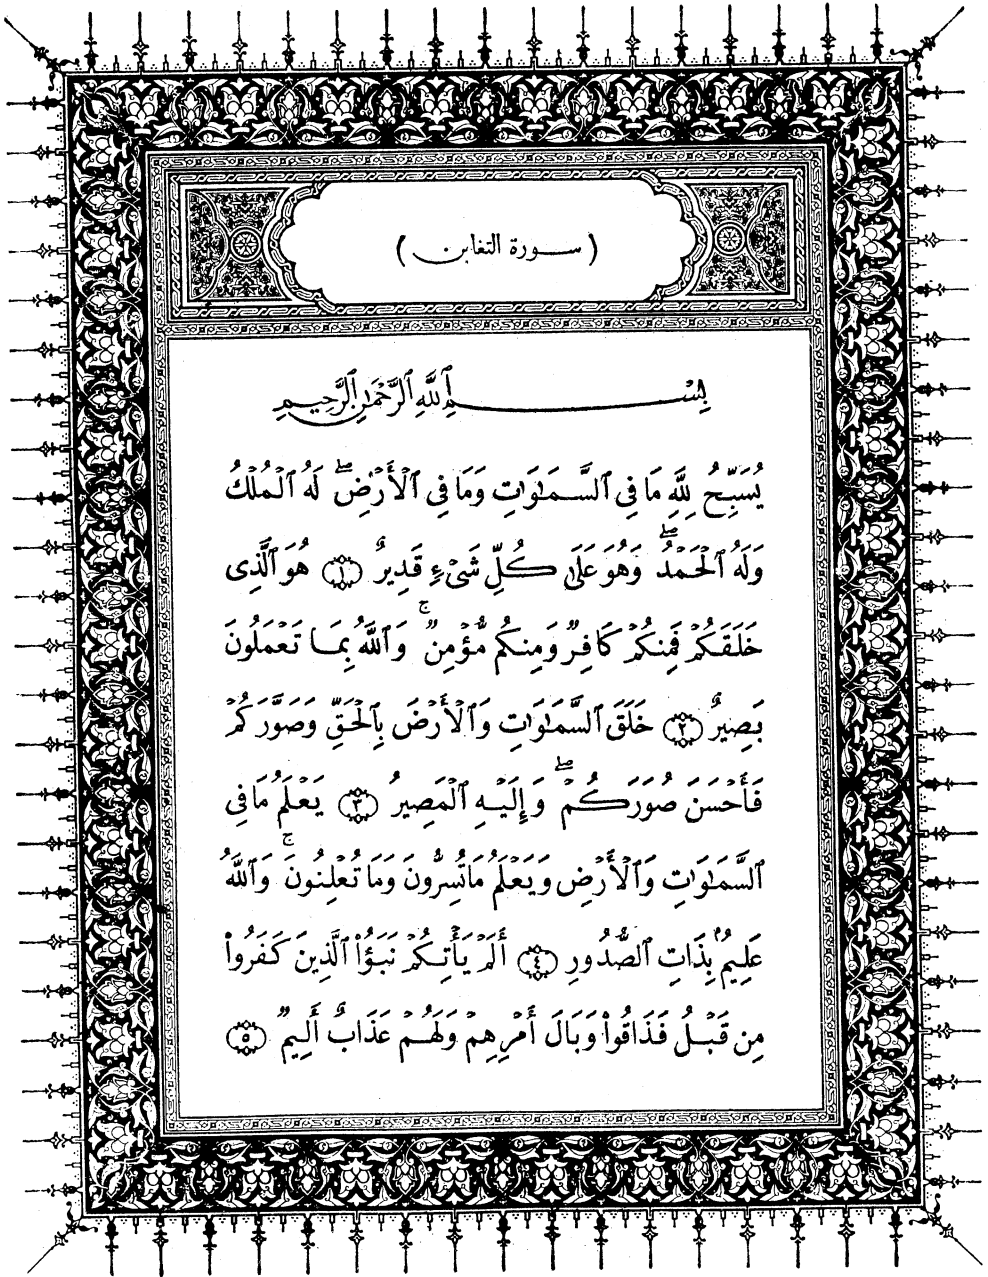 ( سورة التغابن )
بِسْمِ ٱللَّهِ ٱلرَّحْمَٰنِ ٱلرَّحِيمِ
يُسَبِّحُ لِلَّهِ مَا فِى ٱلسَّمَٰوَٰتِ وَمَا فِى ٱلْأَرْضِۖ لَهُ ٱلْمُلْكُ
وَلَهُ ٱلْحَمْدُۖ وَهُوَ عَلَىٰ كُلِّ شَىْءٍ قَدِيرٌ ١ هُوَ ٱلَّذِى
خَلَقَكُمْ فَمِنكُمْ كَافِرٌ وَمِنكُم مُّؤْمِنٌۚ وَٱللَّهُ بِمَا تَعْمَلُونَ
بَصِيرٌ ٢ خَلَقَ ٱلسَّمَٰوَٰتِ وَٱلْأَرْضَ بِٱلْحَقِّ وَصَوَّرَكُمْ
فَأَحْسَنَ صُوَرَكُمْۖ وَإِلَيْهِ ٱلْمَصِيرُ ٣ يَعْلَمُ مَا فِى
ٱلسَّمَٰوَٰتِ وَٱلْأَرْضِ وَيَعْلَمُ مَا تُسِرُّونَ وَمَا تُعْلِنُونَۚ وَٱللَّهُ
عَلِيمٌۢ بِذَاتِ ٱلصُّدُورِ ٤ أَلَمْ يَأْتِكُمْ نَبَؤُا۟ ٱلَّذِينَ كَفَرُوا۟
مِن قَبْلُ فَذَاقُوا۟ وَبَالَ أَمْرِهِمْ وَلَهُمْ عَذَابٌ أَلِيمٌ ٥